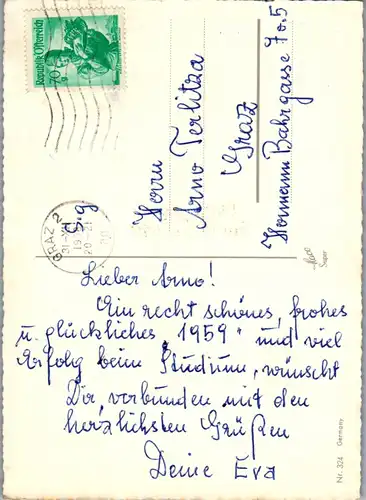 Republik Österreich
70 g
GRAZ 2
31.XII
19-21
S. g.
Herrn
Arno Terlitza
Graz
Hermann Bahrgasse 7o.5
Super
Lieber Arno!
Ein recht schönes, frohes
u. glückliches „1959" und viel
Erfolg beim Studium, wünscht
Dir, verbunden mit den
herzlichsten Grüßen
Deine Eva
Nr. 324 Germany